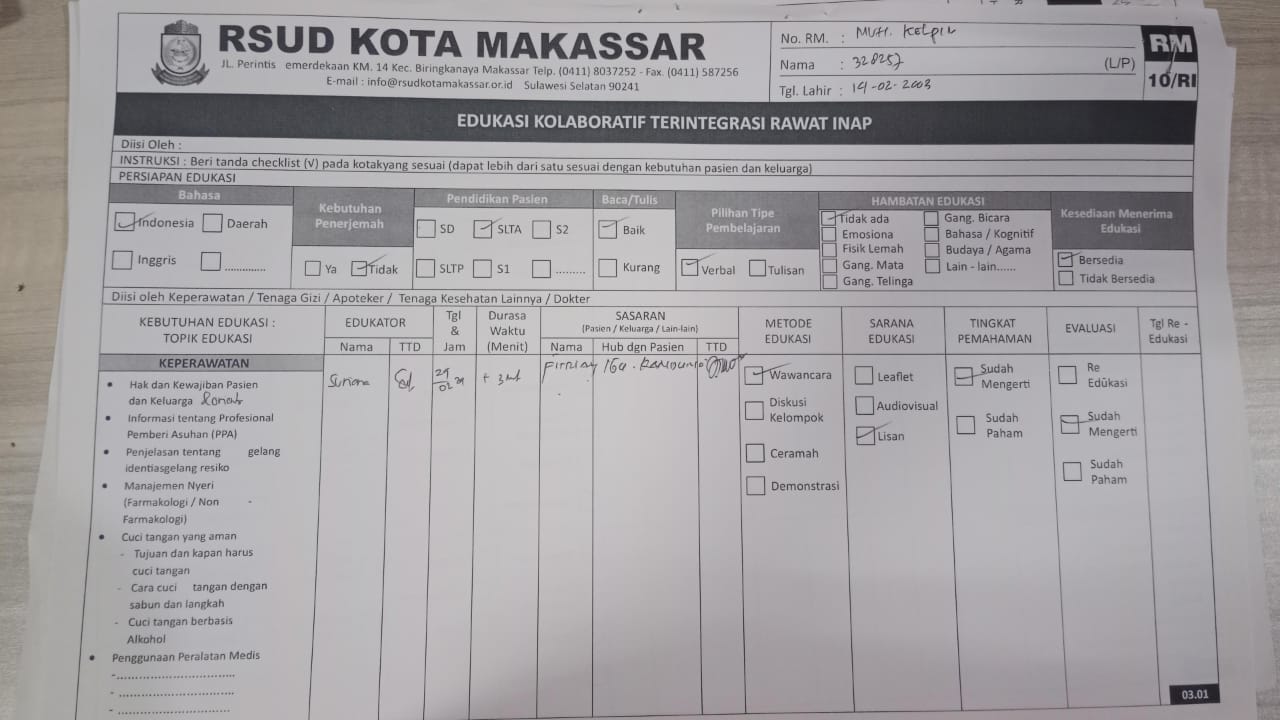 RSUD KOTA MAKASSAR
JL. Perintis emerdekaan KM. 14 Kec. Biringkanaya Makassar Telp. (0411) 8037252 - Fax. (0411) 587256
E-mail : info@rsudkotamakassar.or.id Sulawesi Selatan 90241
No. RM. : MUH. Kelpin
Nama : 328257 (L/P)
Tgl. Lahir : 14-02-2003
RM
10/RI
EDUKASI KOLABORATIF TERINTEGRASI RAWAT INAP
Diisi Oleh :
INSTRUKSI : Beri tanda checklist (√) pada kotakyang sesuai (dapat lebih dari satu sesuai dengan kebutuhan pasien dan keluarga)
PERSIAPAN EDUKASI
Bahasa
Indonesia Daerah
Inggris ..............
Kebutuhan
Penerjemah
Ya Tidak
Pendidikan Pasien
SD SLTA S2
SLTP S1 .........
Baca/Tulis
Baik
Kurang
Pilihan Tipe
Pembelajaran
Verbal Tulisan
HAMBATAN EDUKASI
Tidak ada Gang. Bicara
Emosiona Bahasa / Kognitif
Fisik Lemah Budaya / Agama
Gang. Mata Lain - lain......
Gang. Telinga
Kesediaan Menerima
Edukasi
Bersedia
Tidak Bersedia
Diisi oleh Keperawatan / Tenaga Gizi / Apoteker / Tenaga Kesehatan Lainnya / Dokter
KEBUTUHAN EDUKASI :
TOPIK EDUKASI
EDUKATOR
Nama TTD
Tgl
&
Jam
Durasa
Waktu
(Menit)
SASARAN
(Pasien / Keluarga / Lain-lain)
Nama Hub dgn Pasien TTD
METODE
EDUKASI
SARANA
EDUKASI
TINGKAT
PEMAHAMAN
EVALUASI
Tgl Re -
Edukasi
KEPERAWATAN
• Hak dan Kewajiban Pasien
dan Keluarga
• Informasi tentang Profesional
Pemberi Asuhan (PPA)
• Penjelasan tentang gelang
identiasgelang resiko
• Manajemen Nyeri
(Farmakologi / Non -
Farmakologi)
• Cuci tangan yang aman
- Tujuan dan kapan harus
cuci tangan
- Cara cuci tangan dengan
sabun dan langkah
- Cuci tangan berbasis
Alkohol
• Penggunaan Peralatan Medis
-..............................
- .............................
- ............................
Suriana
29
02
Wawancara
Diskusi
Kelompok
Ceramah
Demonstrasi
Leaflet
Audiovisual
Lisan
Sudah
Mengerti
Sudah
Paham
Re
Edukasi
Sudah
Mengerti
Sudah
Paham
03.01